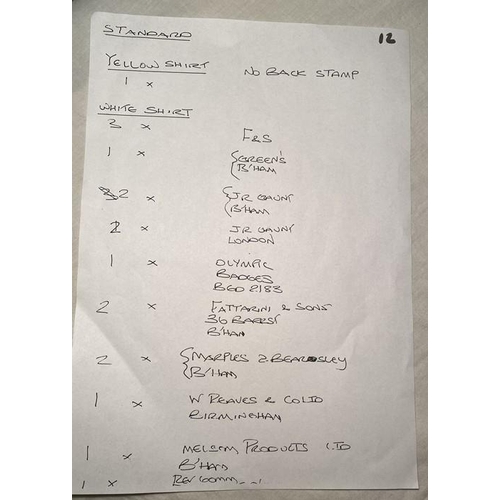 STANDARD
12
YELLOW SHIRT
1 x NO BACK STAMP
WHITE SHIRT
3 x F&S
1 x GREEN'S
B'HAM
2 x JR GAUNT
B'HAM
2 x JR GAUNT
LONDON
1 x OLYMPIC
BADGES
BGD 2183
2 x FATTARINI & SONS
36 
B'HAM
2 x MARPLES & BEARDSLEY
B'HAM
1 x W REAVES & CO LTD
BIRMINGHAM
1 x PRODUCTS LTD
B'HAM
1 x